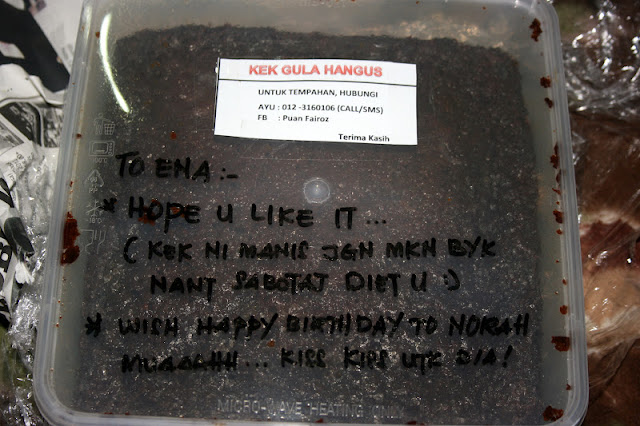 KEK GULA HANGUS
UNTUK TEMPAHAN, HUBUNGI
AYU : 012 -3160106 (CALL/SMS)
FB : Puan Fairoz
Terima Kasih
TO ENA:-
* HOPE U LIKE IT...
( KEK NI MANIS JGN MKN BYK
NANT SABOTAJ DIET U :)
* WISH HAPPY BIRTHDAY TO NORAH
MUAAAHH... KISS KISS UTK DIA!
MICRO-WAVE HEATING ONLY